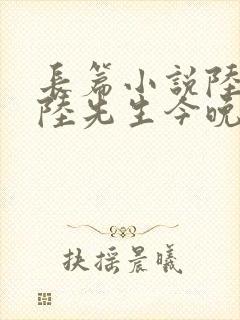 長篇小說陸
陸先生今晚
扶摇晨曦